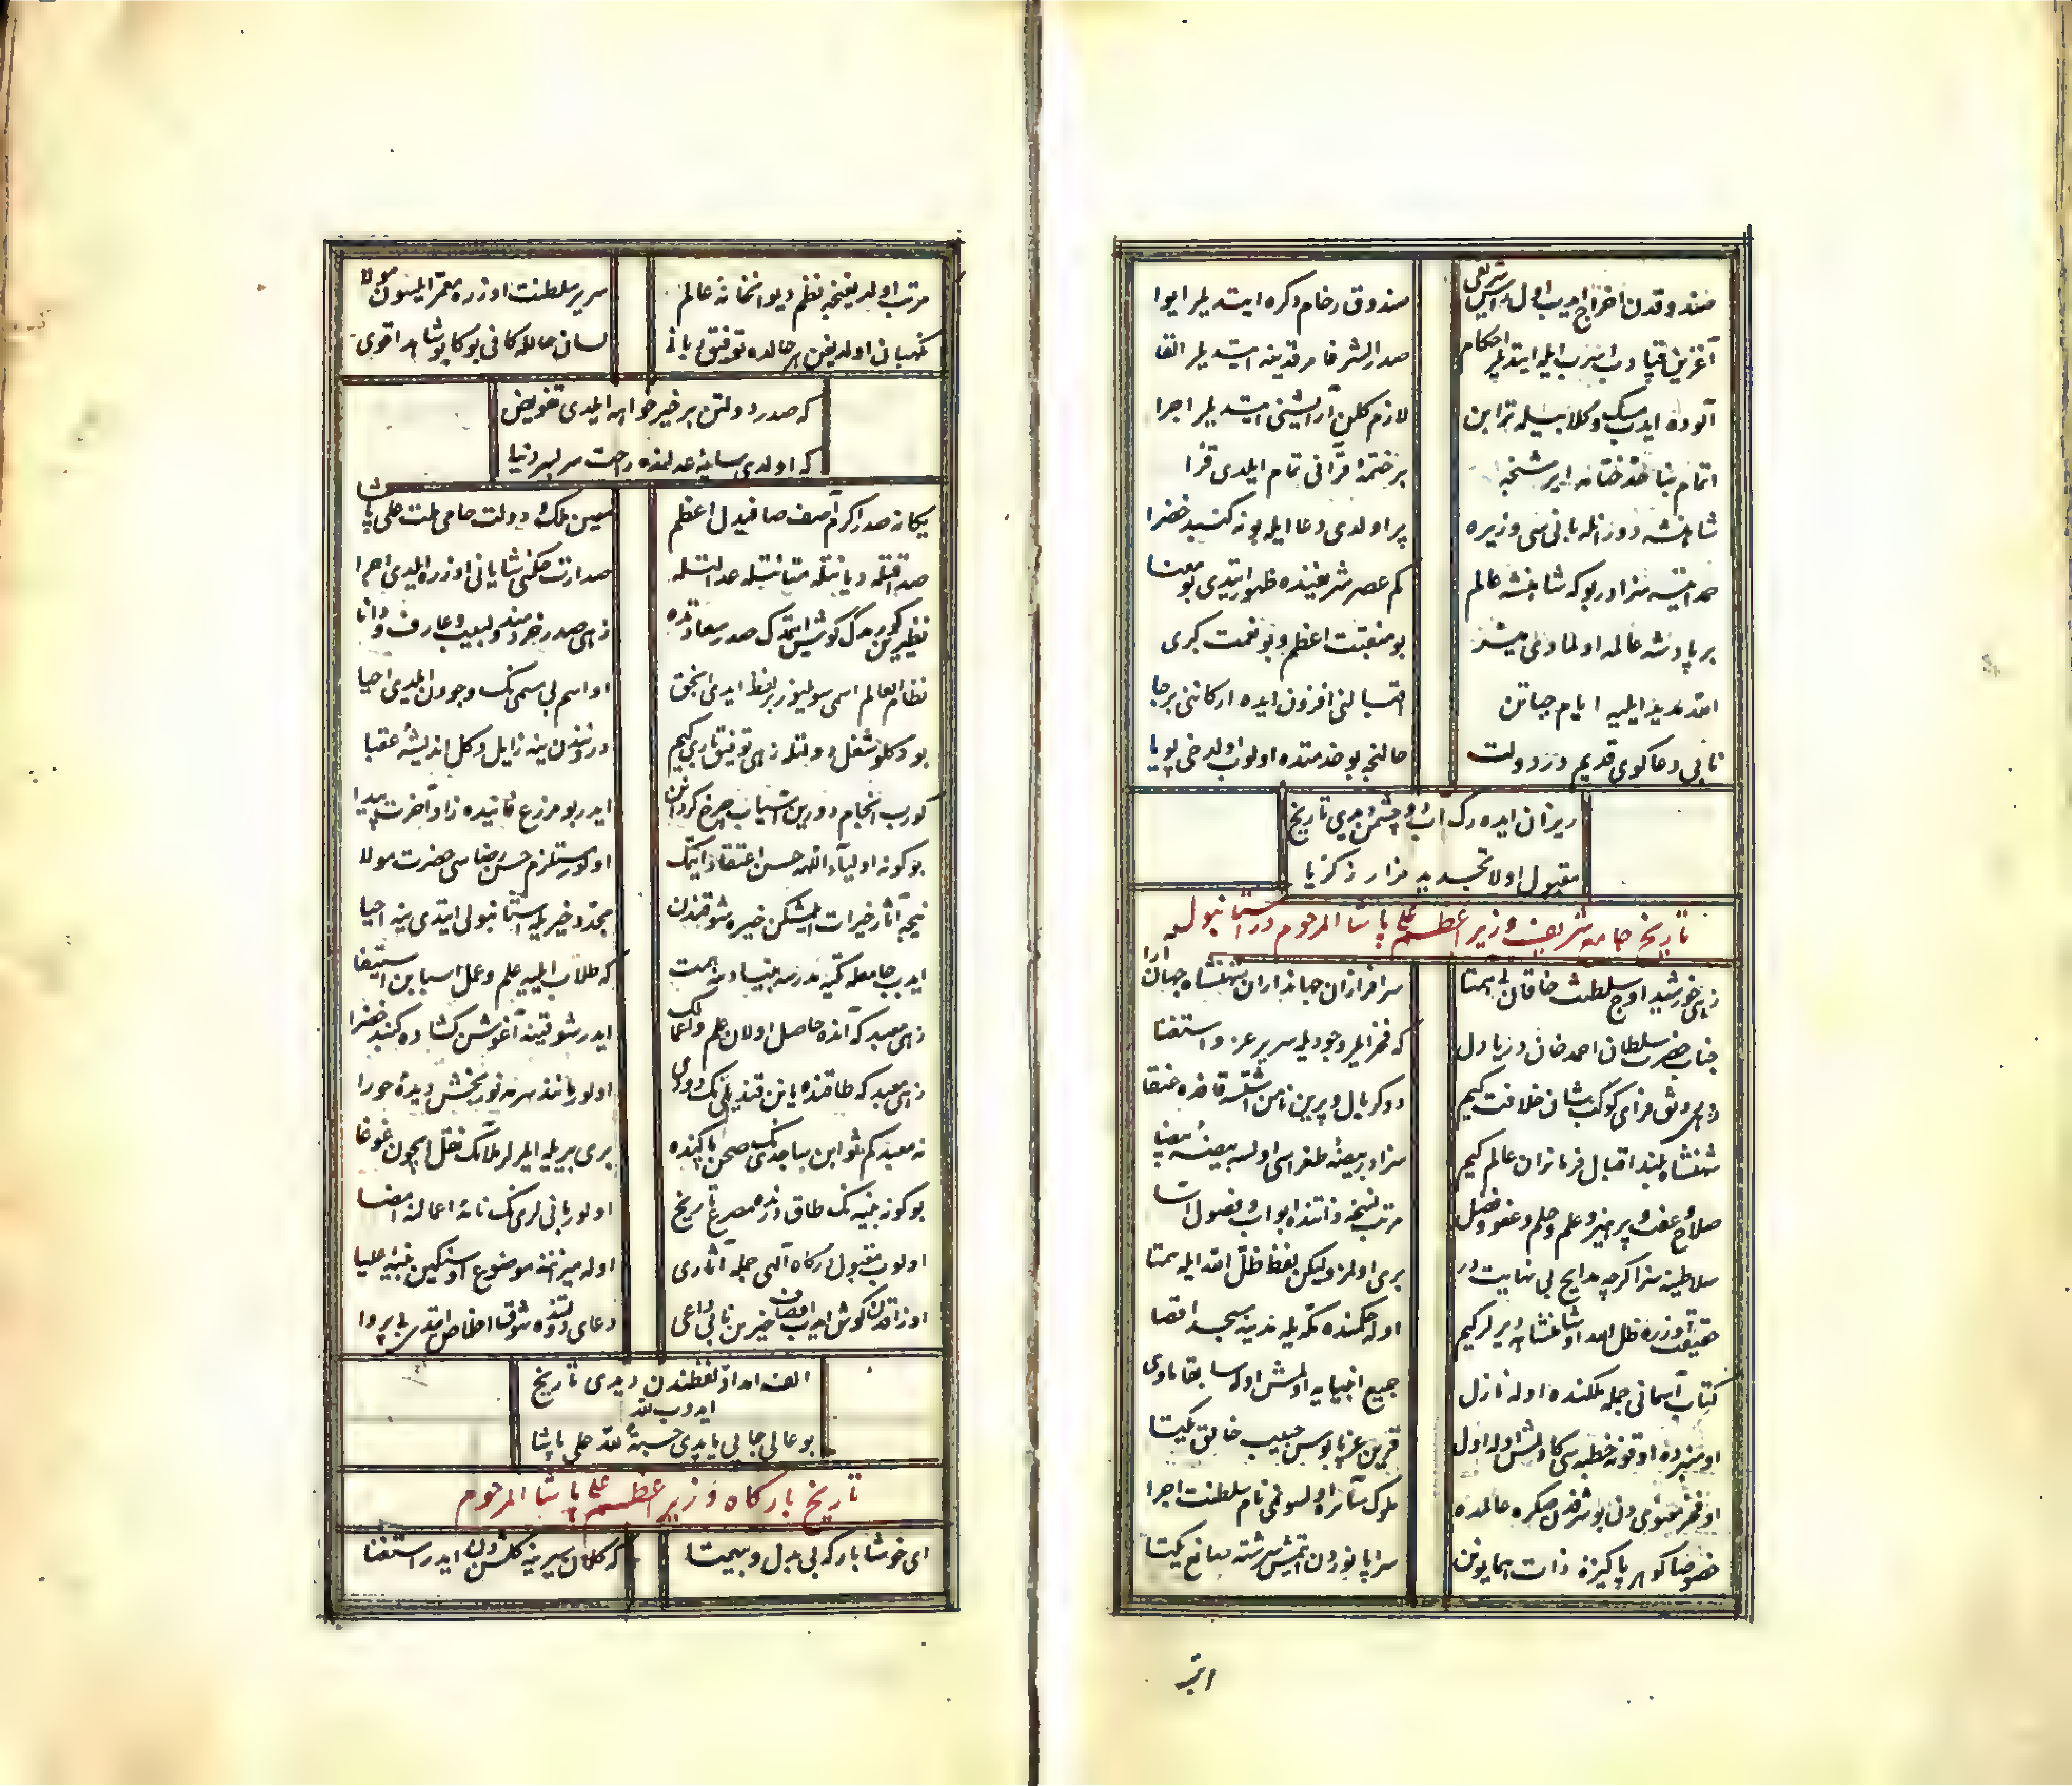 صندوقدن اخراج ایدوب اول شریفی
صندوق رخام دکره ایتدیلر ایوا
ایتدیلر احکام
صدر الشرفا مرقدینه ایتدیلر القا
آلوده ایدوب مسک و کلاب ایله ترابن
لازم کلن آرایشنی ایتدیلر اجرا
اتمام بنا
بر ختمهٔ قرآنی تمام ایلدی قرا
شاهنشه دورانله بانی سی وزیره
پر اولدی دعا ایله بو نه کنبد خضرا
حمد ایتسه سزادر بو که شاهنشه عالم
کم عصر شریفنده ظهور ایتدی بو معنا
بر پادشه عالمه اولمادی میسر
بو منقبت اعظم و بو نعمت کبری
الله مدید ایلیه ایام حیاتن
اقبالنی افزون ایده ارکاننی برجا
نابی دعاکوی قدیم در دولت
حالنجه بو خدمتده اولوب اولدخی پویا
ریزان ایده رک اشک دو چشمن دیدی تاریخ
مقبول اولا تجدید مزار زکریا
تاریخ جامع شریف وزیر اعظم علی پاشا المرحوم در استانبول
زهی خورشید اوج سلطنت خاقان بی همتا
سرافرازان جهانداران شهنشاه جهان آرا
جناب حضرت سلطان احمد خان دریا دل
که فخر ایلر وجودیله سریر عز و استغنا
زهی رونق فزای کوکب شان خلافت کیم
دوکر بال و پرین
شهنشاه بلند اقبال فرمانران عالم کیم
سزادر بیضه طغراسی اولسه بیضهٔ بیضا
صلاح و عفت و پرهیز و علم و حلم و عفو و فضل
مرتب نسخهٔ ذاتنده ابواب و فصول آسا
سلاطینه سزا کرچه مدایح بی نهایت در
بری اولمز ولیکن لفظ ظل الله ایله همتا
حقیقت اوزره ظل الله او شاهنشاهه دیرلر کیم
اوله حکمنده مکه یله مدینه مسجد اقصا
کتاب آسمانی جمله ملکنده اوله نازل
جمیع انبیایه اولمش اوله سابقا ماوی
او منبرده اوقونه خطبه سی کاولمش اوله اول
قرین عز پابوس حبیب خالق یکتا
او فخر معنوی دن بو شرفدن صکره عالمده
ملوک سائره اولسونمی نام سلطنت اجرا
خصوصا کوهر پاکیزهٔ ذات همایونن
سراپا نوردن ایتمش سرشته صانع یکتا
مرتب اولدیغنجه نظم دیوانخانهٔ عالم
سریر سلطنت اوزره معمر ایلسون مولا
نکهبان اولدیغن هر حالده توفیق ربانی
لسان حالله کافی بوکا بو شاهد اقوی
که صدر دولتن بر خیر خواهه ایلدی تفویض
که اولدی سایهٔ عدلنده راحت سر بسر دنیا
یکانه صدر اکرم آصف صافیدل اعظم
معین ملک و دولت حامی ملت علی پاشا
صداقتله دیانتله متانتله عدالتله
صدارت حکمنی شایانی اوزره ایلدی اجرا
نظیرین کورمدک کوش ایتمدک صدر سعادتده
زهی صدر خردمند و لبیب و عارف و دانا
نظام العالم اسمی سویلنور بر لفظ ایدی انجق
او اسم بی مسمی نک وجودن ایلدی احیا
بو دکلو شغل دولتله زهی توفیق باری کیم
دروندن ینه زایل دکل اندیشهٔ عقبا
کوروب انجام دورین آسیاب چرخ کردانن
ایدر بو مزرع فانیده زاد آخرت پیدا
بو کونه اولیاء الله حسن اعتقاد ایتمک
اولور مستلزم حسن رضا سی حضرت مولا
نیجه آثار خیرات ایلمشکن خیره شوقندن
مجدد خیر ایله استانبولی ایتدی ینه احیا
ایدوب جامعله تکیه مدرسه بنیادینه همت
که طلاب ایلیه علم و عمل اسبابن استیفا
زهی معبد که آنده حاصل اولان علم و اعمالک
ایدر شوقینه آغوشن کشاده کنبد خضرا
زهی معبد که طاقنده یانن قندیلی نک دودی
اولور مانند سرمه نوربخش دیدهٔ حورا
نه معبد کم شو ابن ساجدک صحن پاکنده
بری بریله ایلرلر ملائک نقل ایچون غوغا
بو کونه بنیه نک طاق درنده مصرع تاریخ
اولور بانیلری نک نامهٔ اعمالنه امضا
اولوب مقبول درکاه الهی جمله آثاری
اوله میزاننده موضوع او سنکین بنیهٔ علیا
اوزاقدن کوش ایدوب اوصاف خیرین نابی داعی
دعای دولتنده شوق اخلاص ایتدی بی پروا
الف امداد لفظندن دیدی تاریخ
ایدوب لله
بو عالی جایی یاپدی حسبة لله علی پاشا
تاریخ بارکاه وزیر اعظم علی پاشا المرحوم
ای خوشا بارکه بی بدل و بیهمتا
که کلان سیرینه کلشندن ایدر استغنا